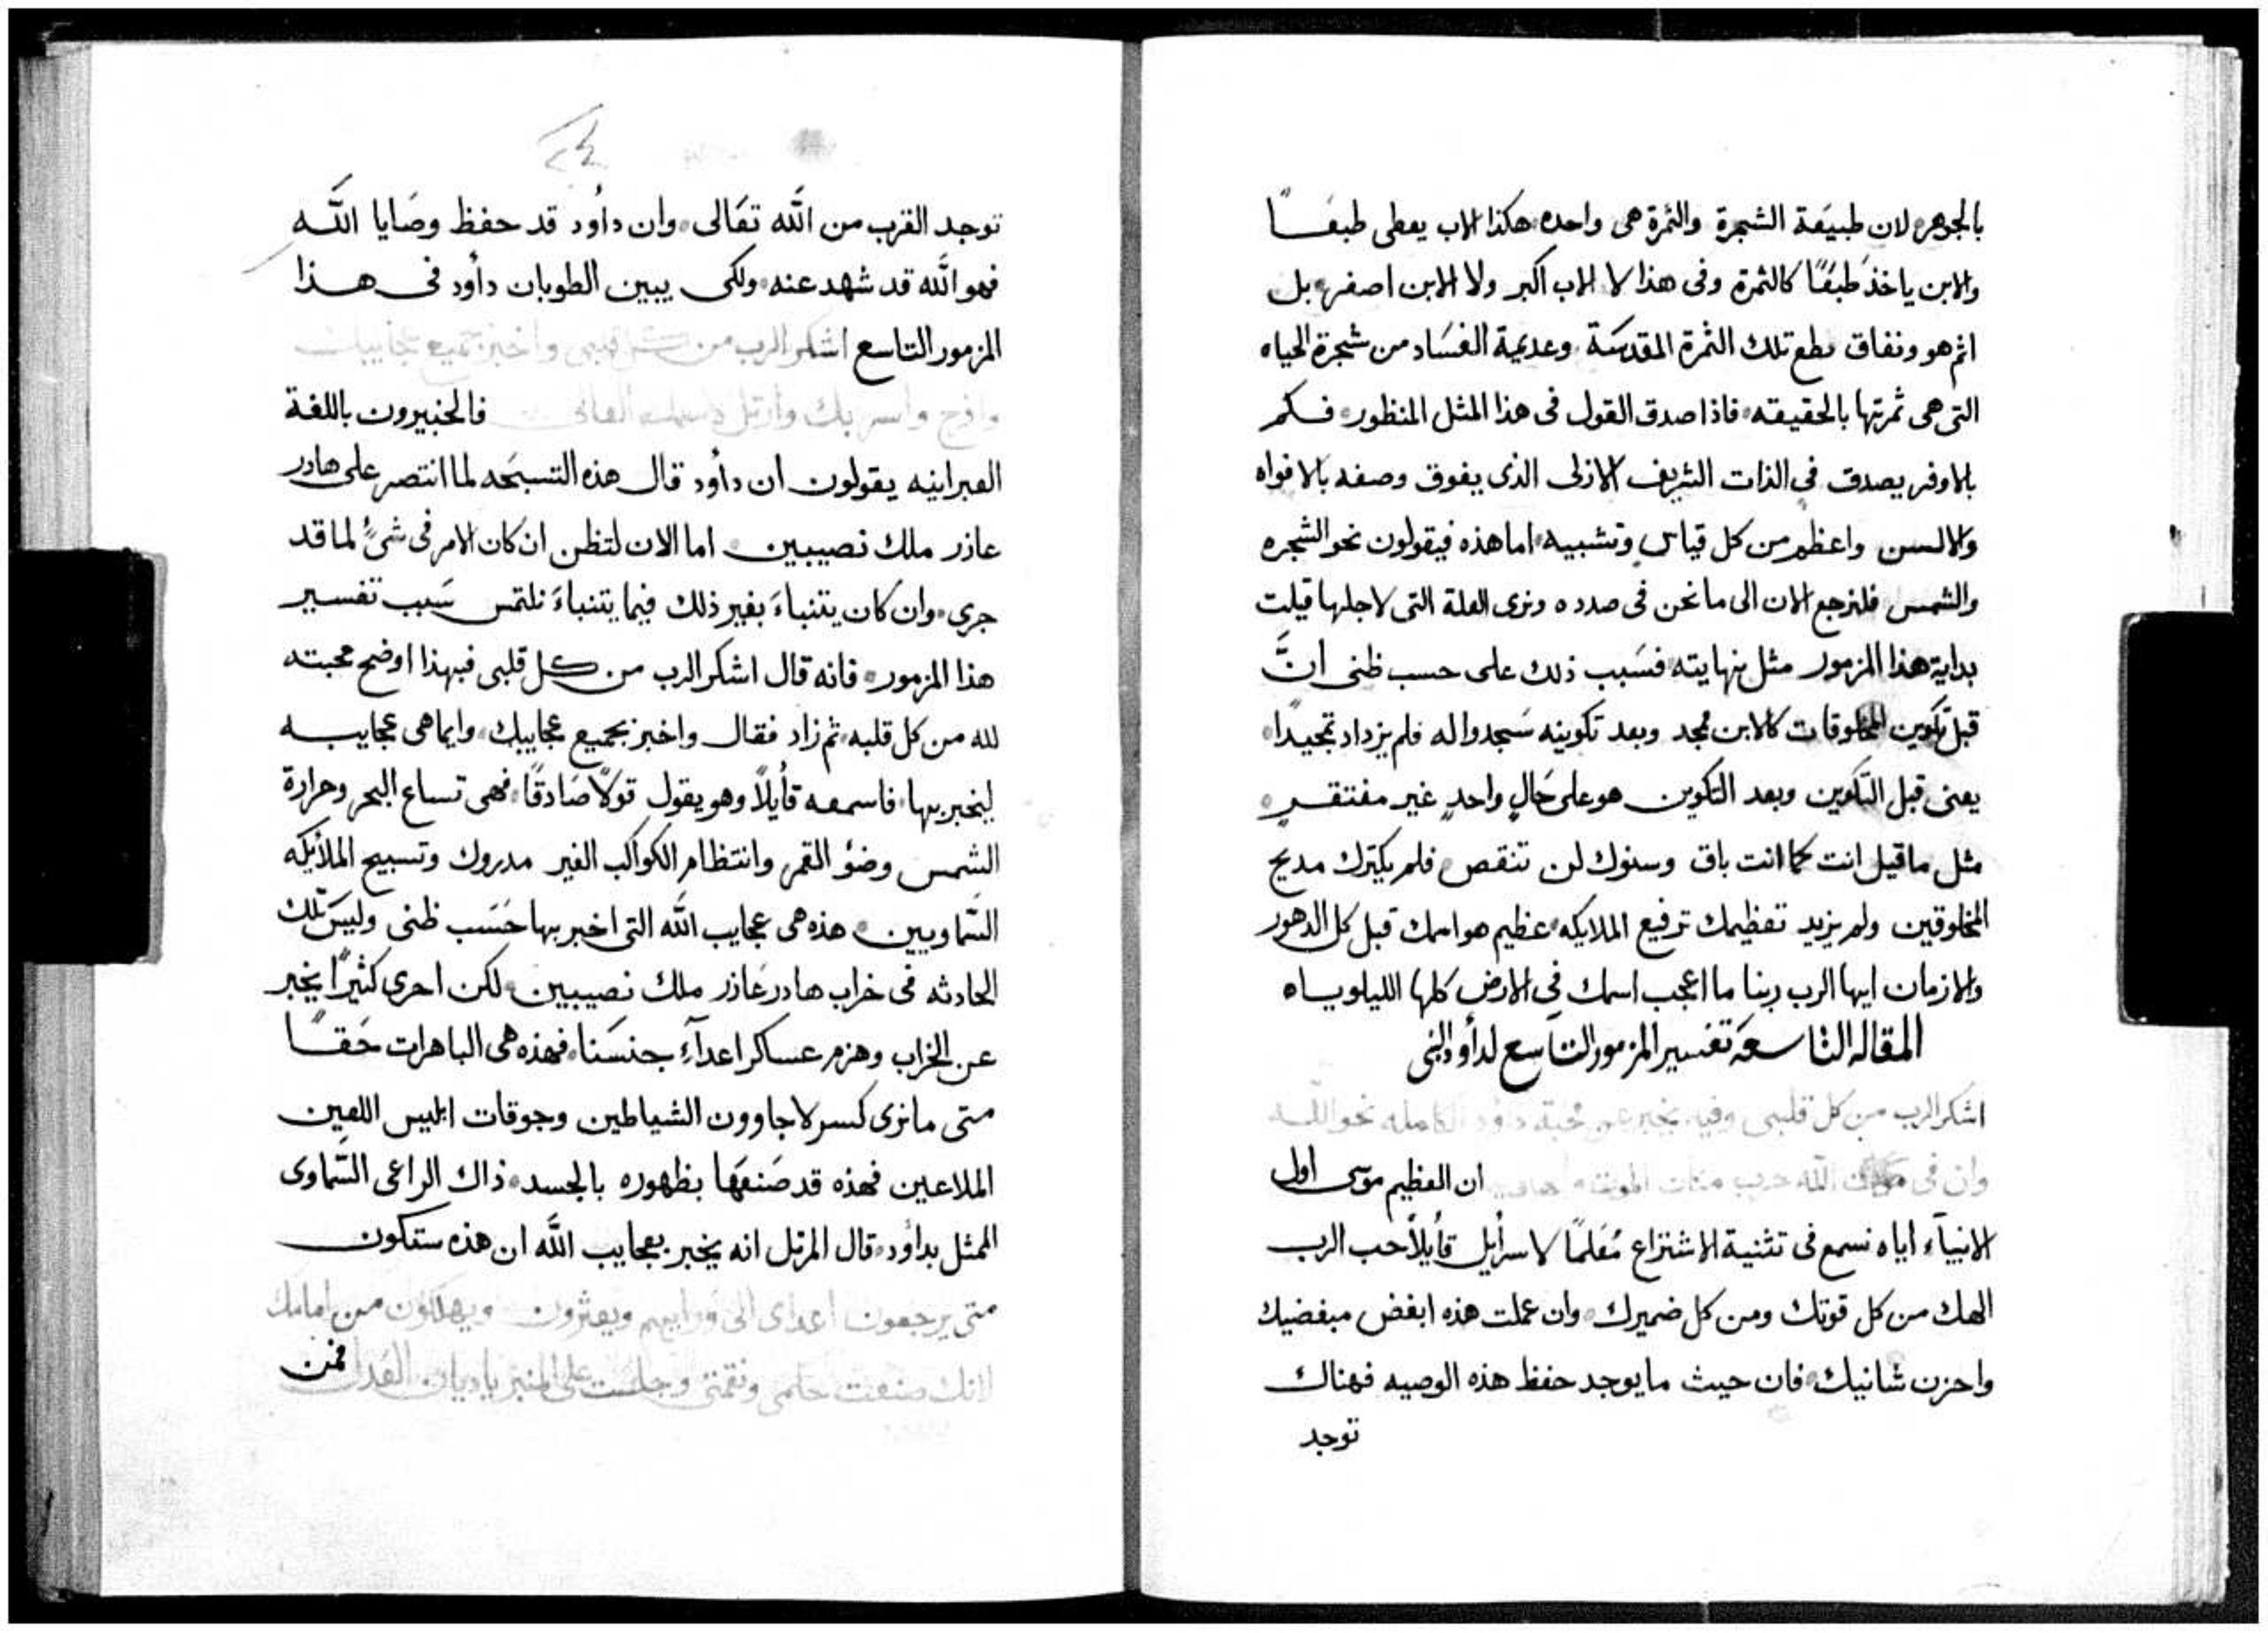 بالجوهر لان طبيعة الشجرة والثمرة هى واحده هكذا الاب يعطى طبعًا
والابن ياخذ طبعًا كالثمرة وفى هذا لا الاب اكبر ولا الابن اصغر بل
اثم هو ونفاق قطع تلك الثمرة المقدسة وعديمة الفساد من شجرة الحياه
التى هى ثمرتها بالحقيقه فاذا صدق القول فى هذا المثل المنظور فكم
بالاوفر يصدق فى الذات الشريف الازلى الذى يفوق وصفه بالافواه
والالسن واعظم من كل قياس وتشبيه اما هذه فيقولون نحو الشجره
والشمس فلنرجع الان الى ما نحن فى صدده ونرى العلة التى لاجلها قيلت
بداية هذا المزمور مثل نهايته فسبب ذلك على حسب ظنى انَّ
قبل تكوين المخلوقات كالابن مجد وبعد تكوينه سجدوا له فلم يزداد تمجيدًا
يعنى قبل التكوين وبعد التكوين هو على حالٍ واحدٍ غير مفتقر
مثل ما قيل انت كما انت باق وسنوك لن تنقص فلم يكترك مديح
المخلوقين ولم يزيد تعظيمك ترفيع الملايكه عظيم هو اسمك قبل كل الدهور
والازمان ايها الرب ربنا ما اعجب اسمك فى الارض كلها الليلوياه
المقاله التاسعة تفسير المزمور التاسع لدأود النبى
اشكر الرب من كل قلبى وفيه يخبر عن محبة داود الكامله نحو الله
وان فى الله حرب ان العظيم موسى اول
الانبيآء اياه نسمع فى تثنية الاشتراع مُعَلمًا لاسرأيل قأيلاً حب الرب
الهك من كل قوتك ومن كل ضميرك وان عملت هذه ابغض مبغضيك
واحزن شانيك فان حيث ما يوجد حفظ هذه الوصيه فهناك
توجد
توجد القرب من الله تعَالى وان دأود قد حفظ وصَايا الله
فهو الله قد شهد عنه ولكى يبين الطوبان دأود فى هذا
المزمور التاسع اشكر الرب من كل قلبى واخبر بجميع عجاييبك
وافرح واسر بك وارتل لاسمك العالى فالخبيرون باللغة
العبرانيه يقولون ان دأود قال هذه التسبحه لما انتصر على هادر
عاذر ملك نصيبين اما الان لتظن ان كان الامر فى شىءٍ لما قد
جرى وان كان يتنباءَ بغير ذلك فيما يتنباءَ نلتمس سَبب تفسير
هذا المزمور فانه قال اشكر الرب من كل قلبى فبهذا اوضح محبته
لله من كل قلبه ثم زاد فقال واخبر بجميع عجاييبك وايما هى عجاييبه
ليخبر بها فاسمعه قأيلاً وهو يقول قولاً صَادقًا فهى تساع البحر وحرارة
الشمس وضؤ القمر وانتظام الكواكب الغير مدروك وتسبيح الملأيكه
السَّماويين هذه هى عجايب الله التى اخبر بها حَسَب ظنى وليسَ تلك
الحادثه فى خراب هادر عَاذر ملك نصيبين لكن احرى كثيرًا يخبر
عن الخراب وهزم عساكر اعدآءِ جنسَنا فهذه هى الباهرات حَقًا
متى ما نرى كسر لاجاوون الشياطين وجوقات ابليس اللعين
الملاعين فهذه قد صَنعَها بظهوره بالجسد ذاك الراعى السَّماوى
الممثل بدأود قال المرتل انه يخبر بعجايب الله ان هذه ستكون
متى يرجعون اعداى الى ورايهم ويعثرون ويهلكون من امامك
لانك صنعت حكمى ونقمتى وجلست على المنبر ياديان العدل فمن